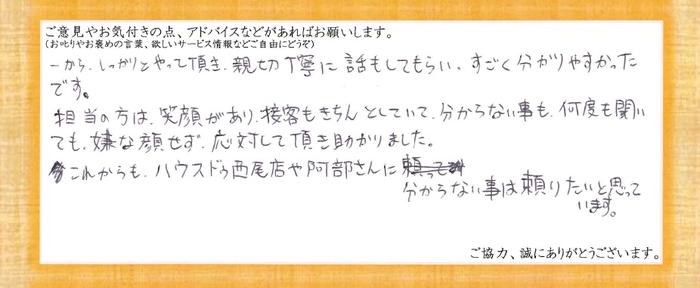 ご意見やお気付きの点、アドバイスなどがあればお願いします。
(お叱りやお褒めの言葉、欲しいサービス情報などご自由にどうぞ)
一から、しっかりとやって頂き、親切丁寧に話もしてもらい、すごく分かりやすかった
です。
担当の方は、笑顔があり、接客もきちんとしていて、分からない事も、何度も聞い
ても、嫌な顔せず、応対して頂き助かりました。
これからも、ハウスドゥ西尾店や阿部さんに
分からない事は頼りたいと思って
います。
ご協力、誠にありがとうございます。